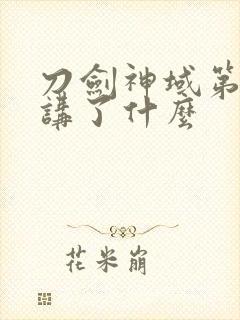 刀劍神域第
講了什麼
花米崩